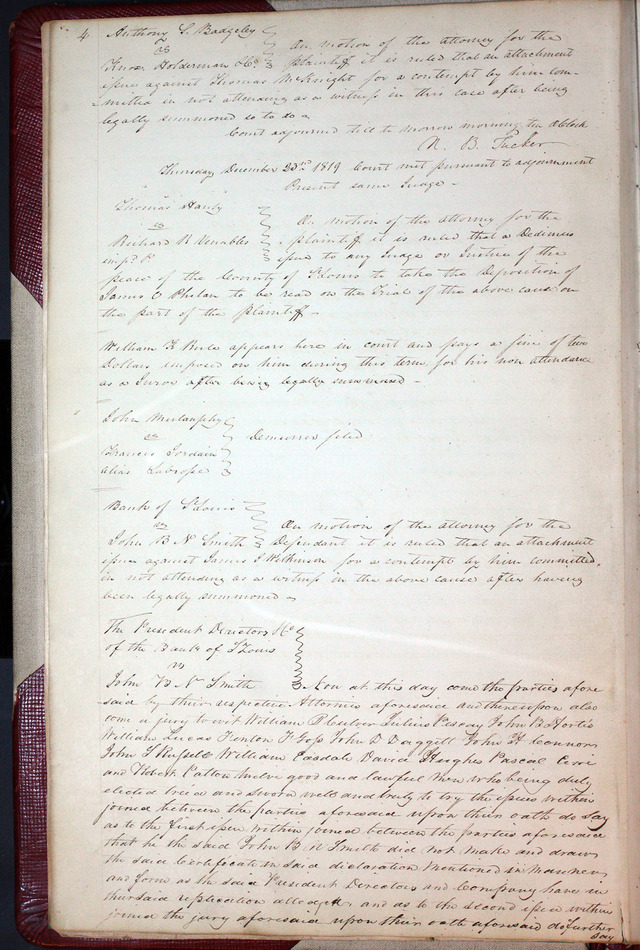 4
Anthony S. Badgeley
vs
On motion of the attorney for the
Knox Holderman & Co plaintiff it is ruled that an attachment
issue against Thomas McKnight for a contempt by him com-
mitted in not attending as a witness in this case after being
legally summoned so to do
Court adjourned till to morrow morning ten oClock
N. B. Tucker
Thursday December 23rd 1819 Court met pursuant to adjournment
Present same Judge -
Thomas Hardy
vs
On motion of the attorney for the
Richard N Venables plaintiff it is ruled that a Dedimus
issue to any Judge or Justice of the
peace of the County of St Louis to take the Deposition of
James C Phelan to be read on the Trial of the above cause on
the part of the plaintiff -
William K Rule appears here in court and pays a fine of two
Dollars imposed on him during this term for his non attendance
as a Juror after being legally summoned -
John Mullanphy
vs Demurrer filed
Francis Jordain
alias Labrosse
Bank of St Louis
vs On motion of the attorney for the
John B N Smith Defendant it is ruled that an attachment
issue against James S Wilkinson for a contempt by him committed,
in not attending as a witness in the above cause after having
been legally summoned
The President Directors &c
of the Bank of St Louis
vs
John B N Smith Now at this day come the parties afore
said by their respective Attornies aforesaid and thereupon also
come a jury to wit William P Culver Julius John B Hortis
William Lucas Fenton F Goss John D Daggett John H Connors
John T Russell William Easdale David Hughes Pascal Cerré
and Robert Patton twelve good and lawful men who being duly
elected tried and sworn well and truly to try the issues within
joined between the parties aforesaid upon their oath do say
as to the first issue within joined between the parties aforesaid
that he the said John B N Smith did not make and draw
the said Certificate in said declaration mentioned in manner
and form as the said President Directors and Company have in
their said replication alledged, and as to the second issue within
joined the jury aforesaid upon their oath aforesaid do further
say